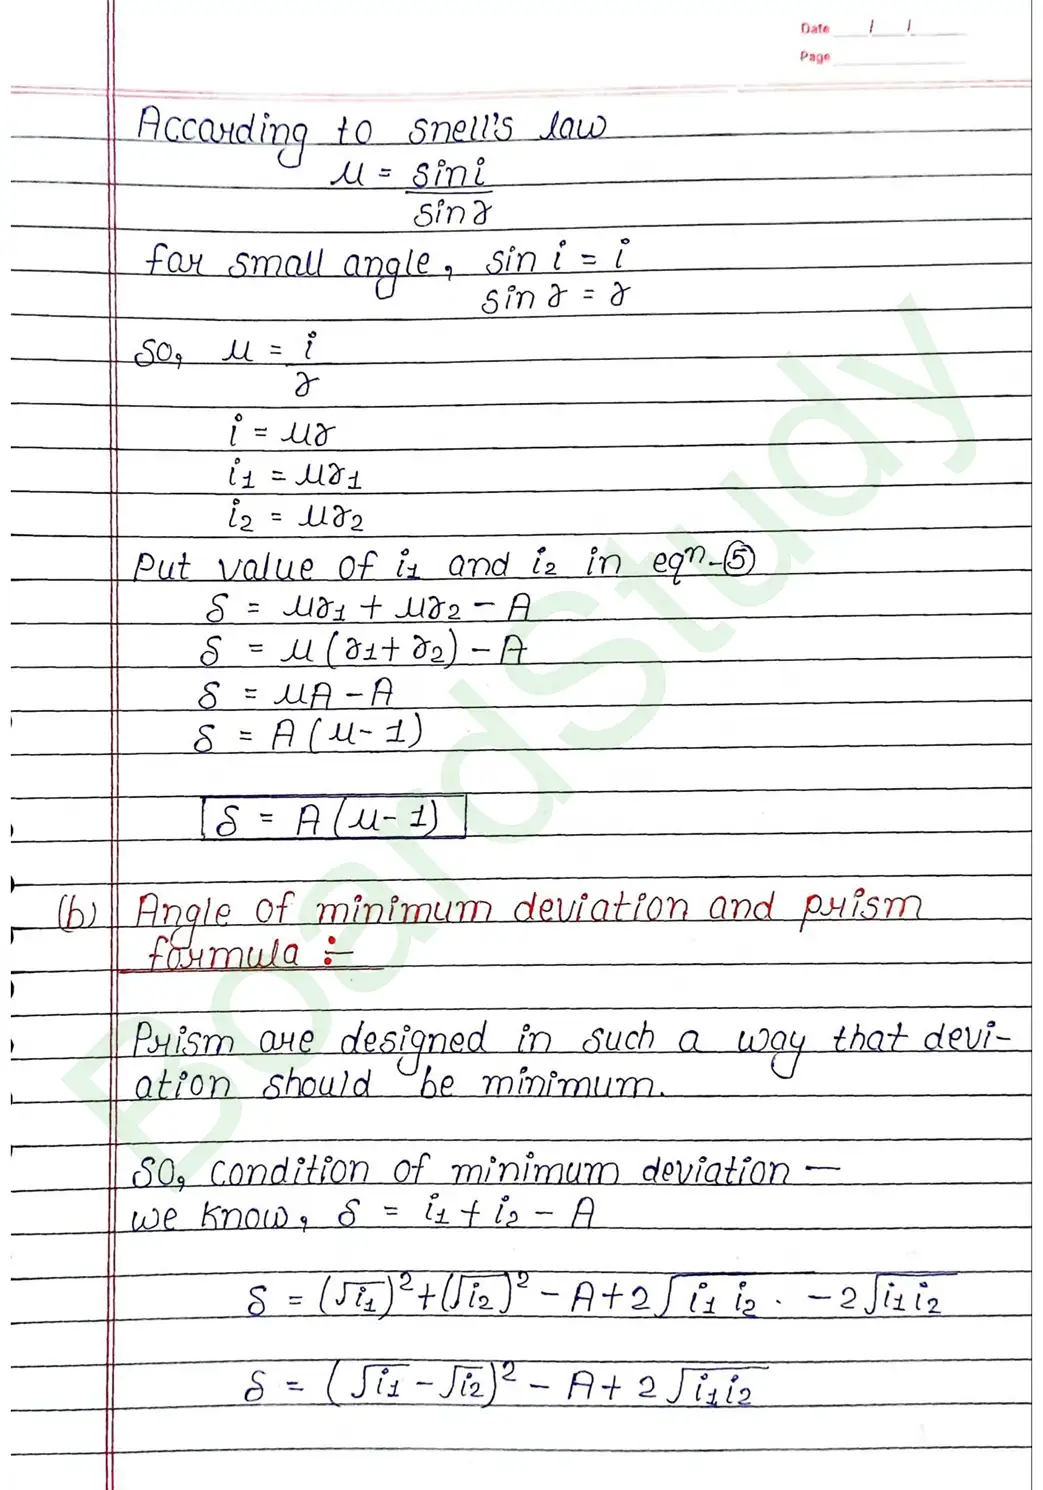 Date / /
Page
According to snell's law
μ = sin i
sin r
for small angle, sin i = i
sin r = r
So, μ = i
r
i = μr
i1 = μr1
i2 = μr2
Put value of i1 and i2 in eqn-⑤
δ = μr1 + μr2 - A
δ = μ(r1+r2) - A
δ = μA - A
δ = A(μ-1)
δ = A(μ-1)
(b) Angle of minimum deviation and prism
formula ÷
Prism are designed in such a way that devi-
ation should be minimum.
So, condition of minimum deviation —
we know, δ = i1 + i2 - A
δ = (√i1)²+(√i2)² - A+2√i1 i2 . -2√i1i2
δ = (√i1 -√i2)² - A+ 2√i1i2
BoardStudy